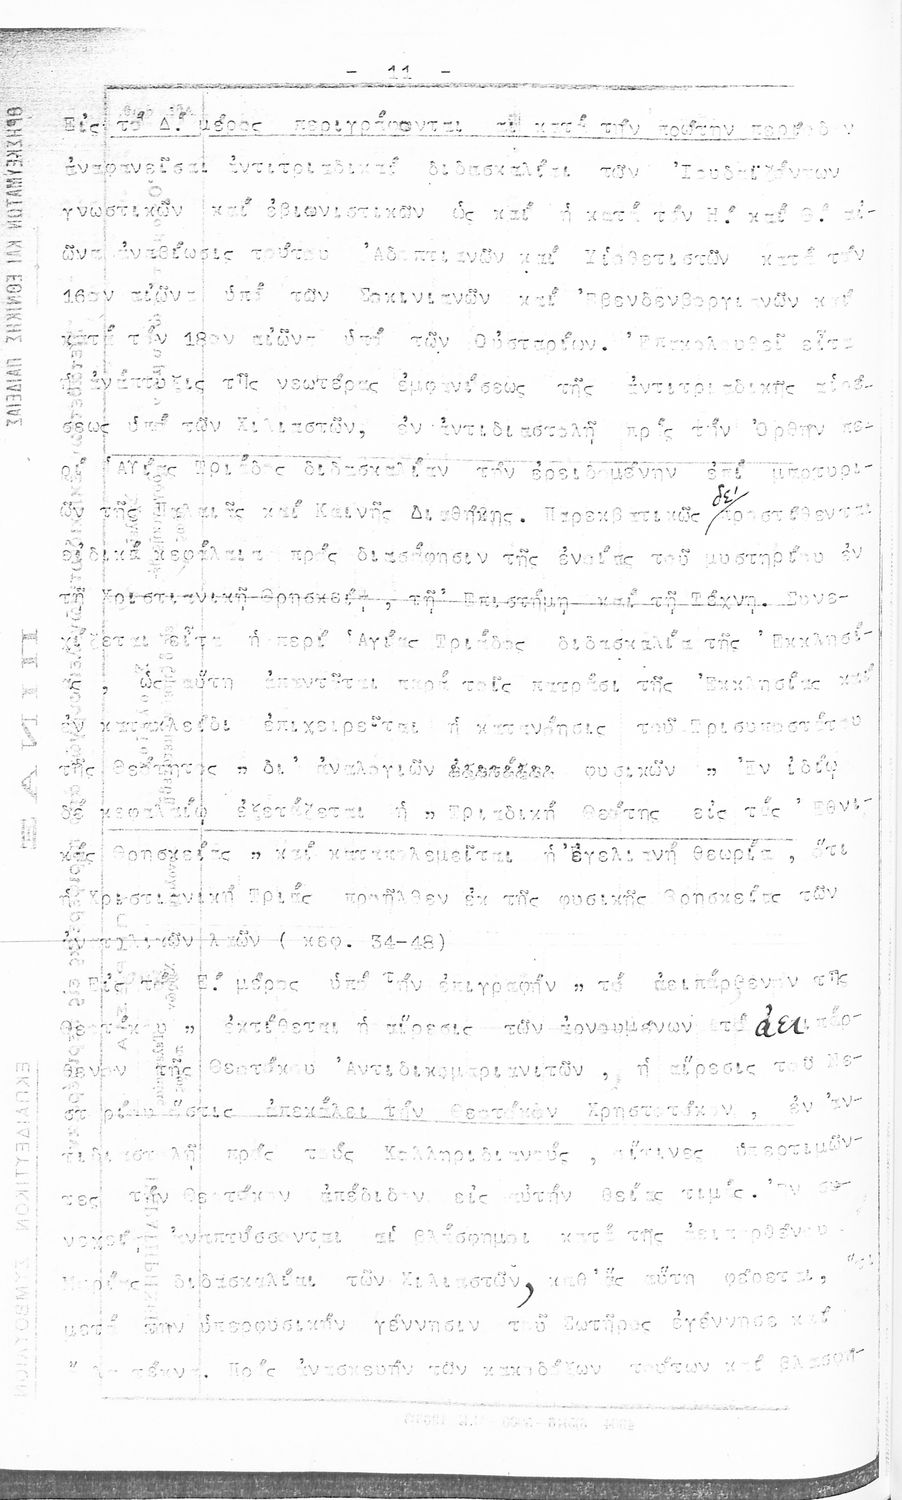 - 11 -
Εἰς τό Δ! μέρος περιγράφονται αἱ κατά τήν πρώτην περίοδον
ἀναφανεῖσαι ἀντιτριαδικαί διδασκαλίαι τῶν Ἰουδαϊζόντων
γνωστικῶν καί ἐβιωνιστικῶν ὡς καί ἡ κατά τόν Η! καί Θ! αἰ-
ῶνα ἀναβίωσις τούτου Ἀδοπτιανῶν καί Υἱοθετιστῶν κατά τόν
16ον αἰῶνα ὑπό τῶν Σοκινιανῶν καί Σβενδενβοργιανῶν καί
κατά τόν 18ον αἰῶνα ὑπό τῶν Οὐσταρίων. Ἐπακολουθεῖ εἶτα
ἡ ἀνάπτυξις τῆς νεωτέρας ἐμφανίσεως τῆς ἀντιτριαδικῆς αἱρέ-
σεως ὑπό τῶν Χιλιαστῶν, ἐν ἀντιδιαστολῇ πρός τήν Ὀρθήν πε-
ρί Ἁγίας Τριάδος διδασκαλίαν τήν ἐρειδομένην ἐπί μαρτυρι-
ῶν τῆς Παλαιᾶς καί Καινῆς Διαθήκης. Παρεκβατικῶς δέ προστίθενται
εἰδικά κεφάλαια πρός διασάφησιν τῆς ἐννοίας τοῦ μυστηρίου ἐν
τῇ Χριστιανικῇ Θρησκείᾳ, τῇ Ἐπιστήμῃ καί τῇ Τέχνῃ. Συνε-
χίζεται εἶτα ἡ περί Ἁγίας Τριάδος διδασκαλία τῆς Ἐκκλησί-
ας, ὡς αὕτη ἀπαντᾶται παρά τοῖς πατράσι τῆς Ἐκκλησίας καί
ἐν κατακλεῖδι ἐπιχειρεῖται ἡ κατανόησις τοῦ Τρισυποστάτου
τῆς Θεότητος „ δι' ἀναλογιῶν φυσικῶν „ Ἐν ἰδίῳ
δέ κεφαλαίῳ ἐξετάζεται ἡ „ Τριαδική Θεότης εἰς τάς Ἐθνι-
κάς Θρησκείας „ καί καταπολεμεῖται ἡ Ἐγελιανή θεωρία, ὅτι
ἡ Χριστιανική Τριάς προῆλθεν ἐκ τῆς φυσικῆς θρησκείας τῶν
ἀνατολικῶν λαῶν ( κεφ. 34-48)
Εἰς τό Ε! μέρος ὑπό τήν ἐπιγραφήν „ τό ἀειπάρθενον τῆς
Θεοτόκου „ ἐκτίθεται ἡ αἵρεσις τῶν ἀρνουμένων τό ἀει πάρ-
θενον τῆς Θεοτόκου Ἀντιδικομαριανιτῶν, ἡ αἵρεσις τοῦ Νε-
στορίου ὅστις ἀπεκάλει τήν Θεοτόκον Χρηστοτόκον, ἐν ἀν-
τιδιαστολῇ πρός τούς Κολληριδιανούς, οἵτινες ὑπερτιμῶν-
τες τήν Θεοτόκον ἀπέδιδον εἰς αὐτήν θείας τιμάς. Ἐν συ-
νεχείᾳ ἀναπτύσσονται αἱ βλάσφημοι κατά τῆς ἀειπαρθένου
Μαρίας διδασκαλίαι τῶν Χιλιαστῶν, καθ' ἅς αὕτη φέρεται, ὅτι
μετά τήν ὑπερφυσικήν γέννησιν τοῦ Σωτῆρος ἐγέννησε καί
τέκνα. Πρός ἀνασκευήν τῶν κακοδόξων τούτων καί βλασφή-
ΘΡΗΣΚΕΥΜΑΤΩΝ ΚΑΙ ΕΘΝΙΚΗΣ ΠΑΙΔΕΙΑΣ
ΠΙΝΑΞ
ΕΚΠΑΙΔΕΥΤΙΚΟΝ ΣΥΜΒΟΥΛΙΟΝ